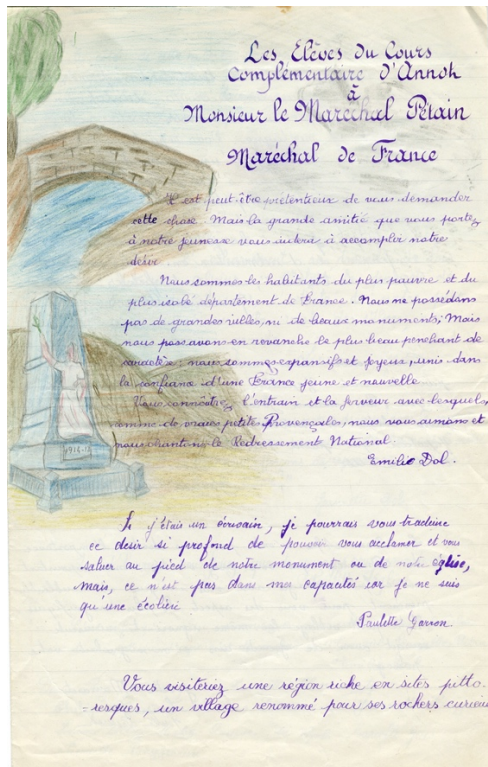 Les Elèves du Cours
Complémentaire d'Annot
à
Monsieur le Maréchal Pétain
Maréchal de France
Il est peut-être prétentieux de vous demander
cette chose. Mais la grande amitié que vous portez
à notre jeunesse vous incitera à accomplir notre
désir.
Nous sommes les habitants du plus pauvre et du
plus isolé département de France. Nous ne possédons
pas de grandes villes, ni de beaux monuments; Mais
nous possédons en revanche le plus beau penchant de
caractère: nous sommes expansifs et joyeux, unis dans
la confiance d'une France jeune et nouvelle.
Vous connaîtrez l'entrain et la ferveur avec lesquels,
comme de vraies petites Provençales, nous vous aimons et
nous chantons le Redressement National.
Emilie Dol.
1914-18
Si j'étais un écrivain, je pourrais vous traduire
ce désir si profond de pouvoir vous acclamer et vous
saluer au pied de notre monument ou de notre église,
mais, ce n'est pas dans mes capacités car je ne suis
qu'une écolière.
Paulette Garron.
Vous visiteriez une région riche en sites pitto-
-resques, un village renommé pour ses rochers curieux